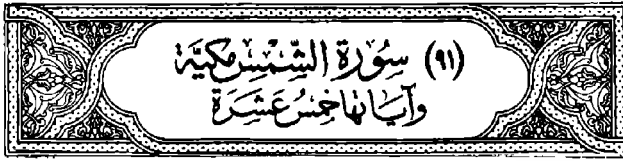 (٩١) سُورَةُ الشَّمْسِ مَكِيَّة
وَآيَاتُهَا خَمْسُ عَشَرَةَ